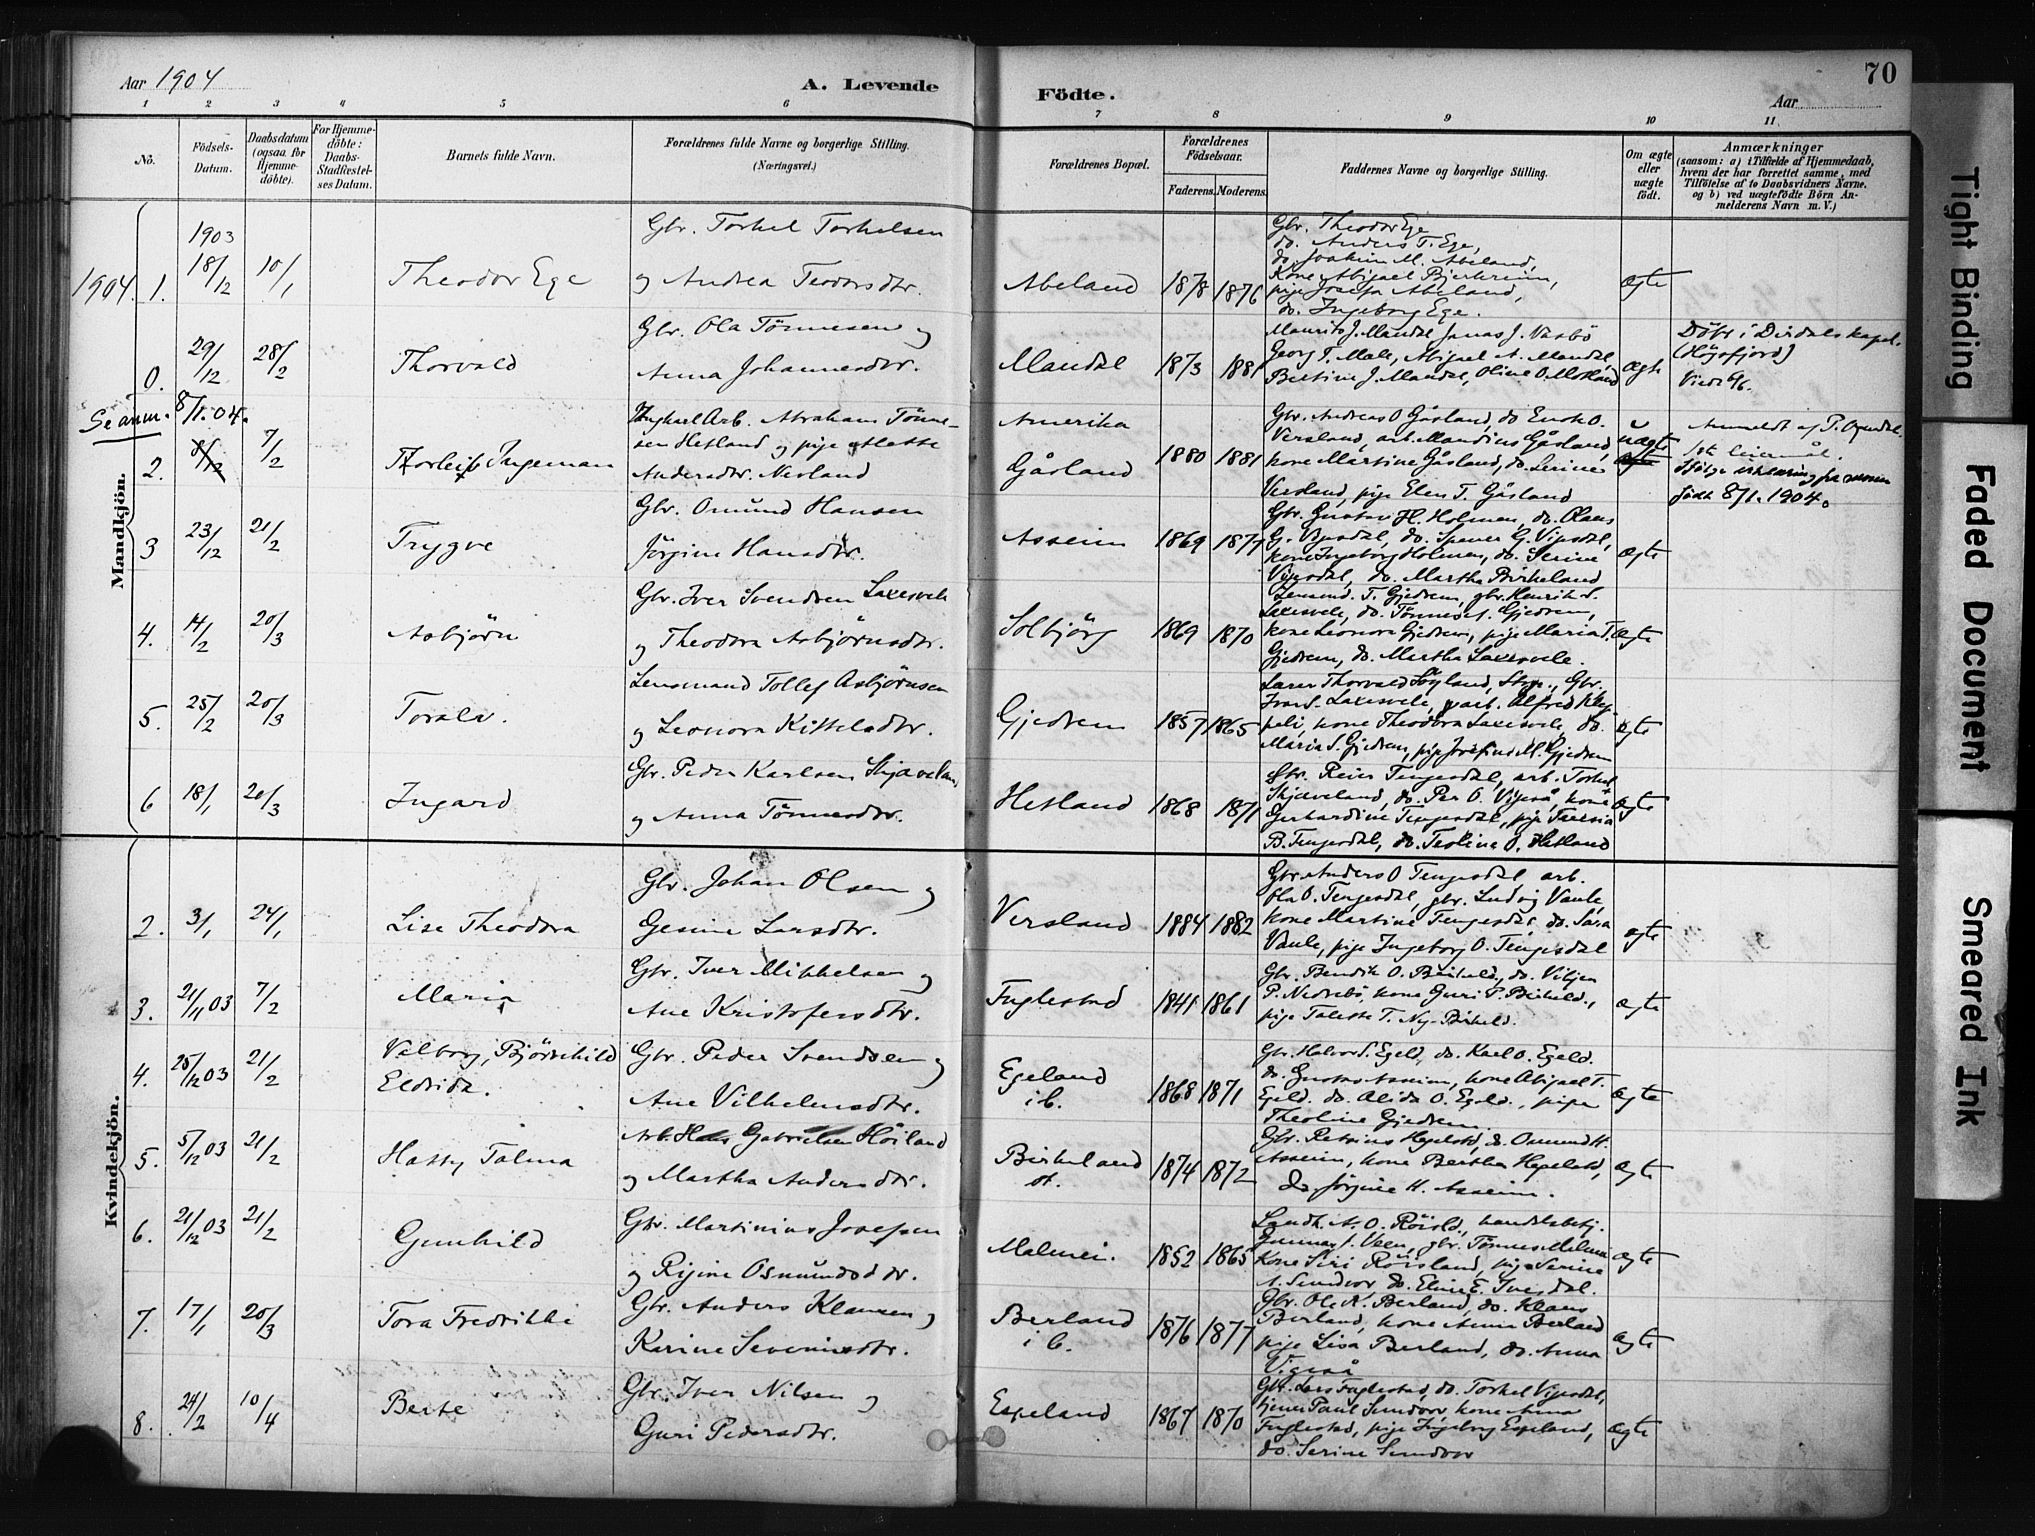 Aar 1904
A. Levende
Födte.
Aar
70
1 2 3 4 5 6 7 8 9 10 11
No.
Födsels-Datum.
Daabsdatum (ogsaa for Hjemme-döbte).
For Hjemme-döbte: Daabs-Stadfæstel-ses Datum.
Barnets fulde Navn.
Forældrenes fulde Navne og borgerlige Stilling.
(Næringsvei.)
Forældrenes Bopæl.
Forældrenes Födselsaar.
Faderens. Moderens.
Faddernes Navne og borgerlige Stilling.
Om ægte eller uægte födt.
Anmærkninger
(saasom: a) i Tilfælde af Hjemmedaab, hvem der har forrettet samme, med Tilföielse af to Daabsvidners Navne. og b) ved uægtefödte Börn An-melderens Navn m. V.)
Mandkjön.
1904. 1. 1903 18/12 10/1 Theodor Ege
Gbr. Torkel Torkelsen
og Andrea Teodorsdtr.
Abeland 1878 1876
Gbr. Theodor Ege
do. Anders T. Ege,
do. Joakim M. Abeland,
Kone Abigael Bjerkreim,
pige Josefa Abeland,
do. Ingeborg Ege.
ægte
0. 29/12 28/2 Thorvald
Gbr. Ola Tönnesen og
Anna Johannesdtr.
Mandal 1873 1881
Maurits J. Mandal Jonas J. Vasbö
Georg T. Male, Abigael A. Mandal,
Bertine J. Mandal, Oline O. Motland
ægte
Döbt i Dirdals kapel.
(Högsfjord)
Se anm. 8/1.04.
2. 8/12 7/2 Thorleif Ingeman
Ungkarl Arb. Abraham Tönne-
sen Hetland og pige Atlette
Andersdtr. Nesland
Amerika
Gåsland 1880 1881
Gbr. Andreas O Gåsland, do Enok O.
Versland, arb. Mandius Gåsland,
kone Martine Gåsland, do. Serine
Versland, pige Elen T. Gåsland
uægte
Anmeldt af P. Ognedal.
1ste leiermål.
Ifölge erklæring fra moren
födt 8/1. 1904.
3 23/12 21/2 Trygve
Gbr. Omund Hansen
Jörgine Hansdtr.
Asseim 1869 1877
Gbr. Gustav H. Holmen, do. Olaus
G. Vigesdal, do. Spener G. Vigesdal,
kone Ingeborg Holmen, do. Serine
Vigesdal, do. Martha Birkeland
ægte
4. 14/2 20/3 Asbjörn
Gbr. Iver Svendsen Laxesvele
og Theodora Asbjörnsdtr.
Solbjörg 1869 1870
Lensmd. T. Gjedrem, gbr. Henrik S.
Laxesvele, do. Tönnes A. Gjedrem,
kone Leonora Gjedrem, pige Maria T.
Gjedrem, do. Martha Laxesvele.
ægte
5. 25/2 20/3 Toralv.
Lensmand Tollef Asbjörnsen
og Leonora Kittelsdtr.
Gjedrem 1857 1865
Lærer Thorvald Höyland, Gbr.
Iver S. Laxesvele, arb. Alfred Klep-
peli, kone Theodora Laxesvele, do.
Maria S. Gjedrem, pige Josefine M. Gjedrem
ægte
6 18/1 20/3 Ingard
Gbr. Peder Karlsen Skjæveland
og Anna Tönnesdtr.
Hetland 1868 1871
Gbr. Reier Tengesdal, arb. Torkel
Skjæveland, do. Per O. Vigeså, kone
Gerhardine Tengesdal, pige Teresia
B. Tengesdal, do. Teoline O. Hetland
ægte
Kvindekjön.
2. 3/1 24/1 Lise Theodora
Gbr. Johan Olsen og
Gesine Larsdtr.
Versland 1884 1882
Gbr. Anders O Tengesdal arb.
Ola O. Tengesdal, gbr. Ludvig Vaule,
kone Martine Tengesdal, do. Sara
Vaule, pige Ingeborg O. Tengesdal
ægte
3. 21/11 03 7/2 Maria
Gbr. Iver Mikkelsen og
Ane Kristofersdtr.
Fuglestad 1841 1861
Gbr. Bendik O. Birkeld, do. Viljen
P. Nedrebö, kone Guri P. Birkeld.,
pige Talette T. Ny-Birkeld.
ægte
4. 25/12 03 21/2 Valborg, Bjørnhild
Eldrida.
Gbr. Peder Svendsen og
Ane Vilhelmsdtr.
Egeland i b. 1868 1871
Gbr. Halvor S. Egeld, do. Karl O. Egeld.
do. Gustav Asseim, kone Abigael T.
Egeld. do. Alida O. Egeld., pige
Theoline Gjedrem.
ægte
5. 5/12 03 21/2 Hatty Talma
Arb. Hans Gabrielsen Höiland
og Martha Andersdtr.
Birkeland ö. 1874 1872
Gbr. Petrius Hegelstd, do. Omund H.
Asseim, kone Bertha Hegelstd,
do. Jörgine H. Asseim.
ægte
6. 21/12 03 21/2 Gunhild
Gbr. Martinius Josefsen
og Rigine Osmundsdtr.
Malmein. 1852 1865
Landh. A. O. Röisld., handelsbetj.
Gunnar J. Veen, gbr. Tönnes Malmei
Kone Siri Röisland, pige Serine
A. Sundvor do. Eline E. Ivesdal.
ægte
7. 17/1 20/3 Tora Fredrikke
Gbr. Anders Klausen og
Karine Severinsdtr.
Berland i b. 1876 1877
Gbr. Ole K. Berland, do. Klaus
Berland, kone Anna Berland
pige Lisa Berland, do. Anna
Vigeså
ægte
8. 24/2 10/4 Berte
Gbr. Iver Nilsen og
Guri Pedersdtr.
Espeland 1867 1870
Gbr. Lars Fuglestad, do. Torkel Vigesdal,
tjener Paul Sundvor kone Anna
Fuglestad, pige Ingeborg Espeland,
do. Serine Sundvor
ægte
Tight Binding
Faded Document
Smeared Ink